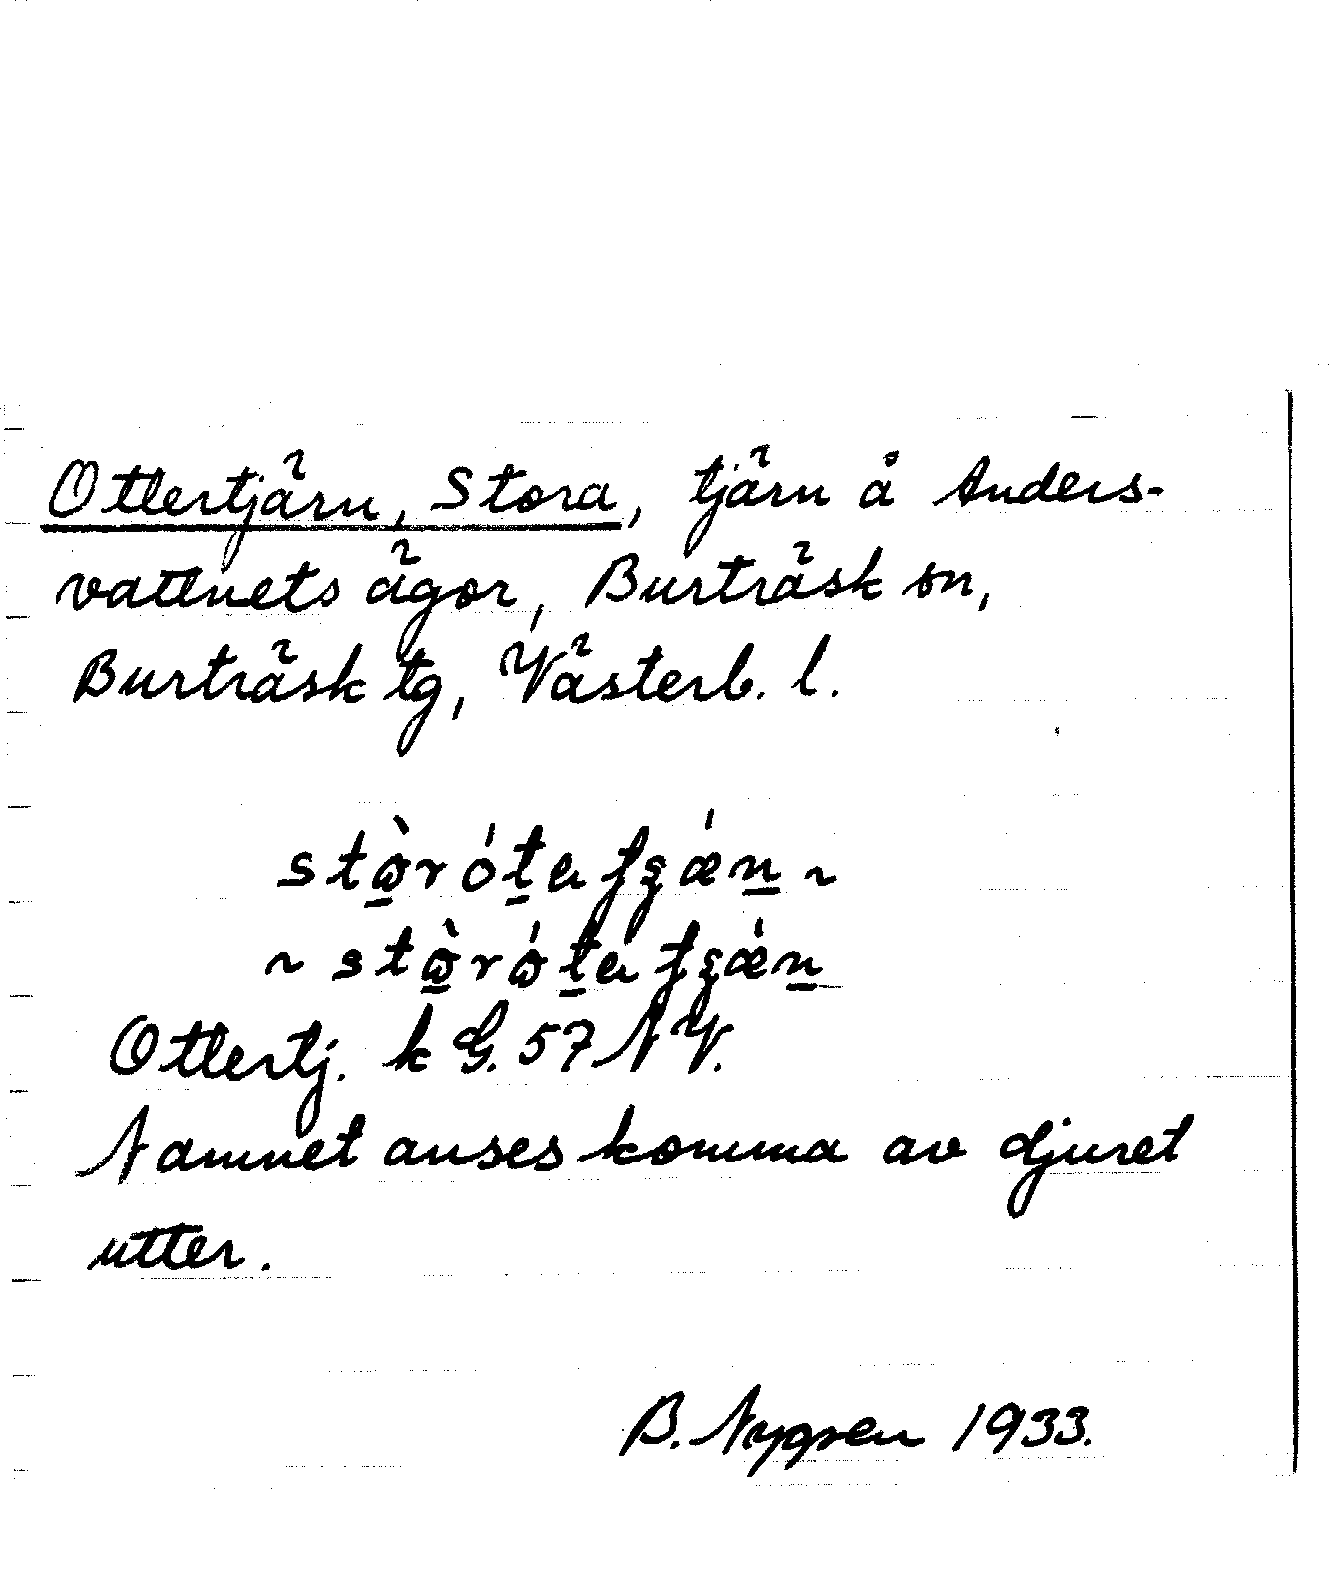 Ottertjärn, Stora, tjärn å Anders-
vattnets ägor, Burträsk sn,
Burträsk tg, Västerb. l.
Ottertj. k G. 57 NV.
Namnet anses komma av djuret
utter.
B. Nygren 1933.